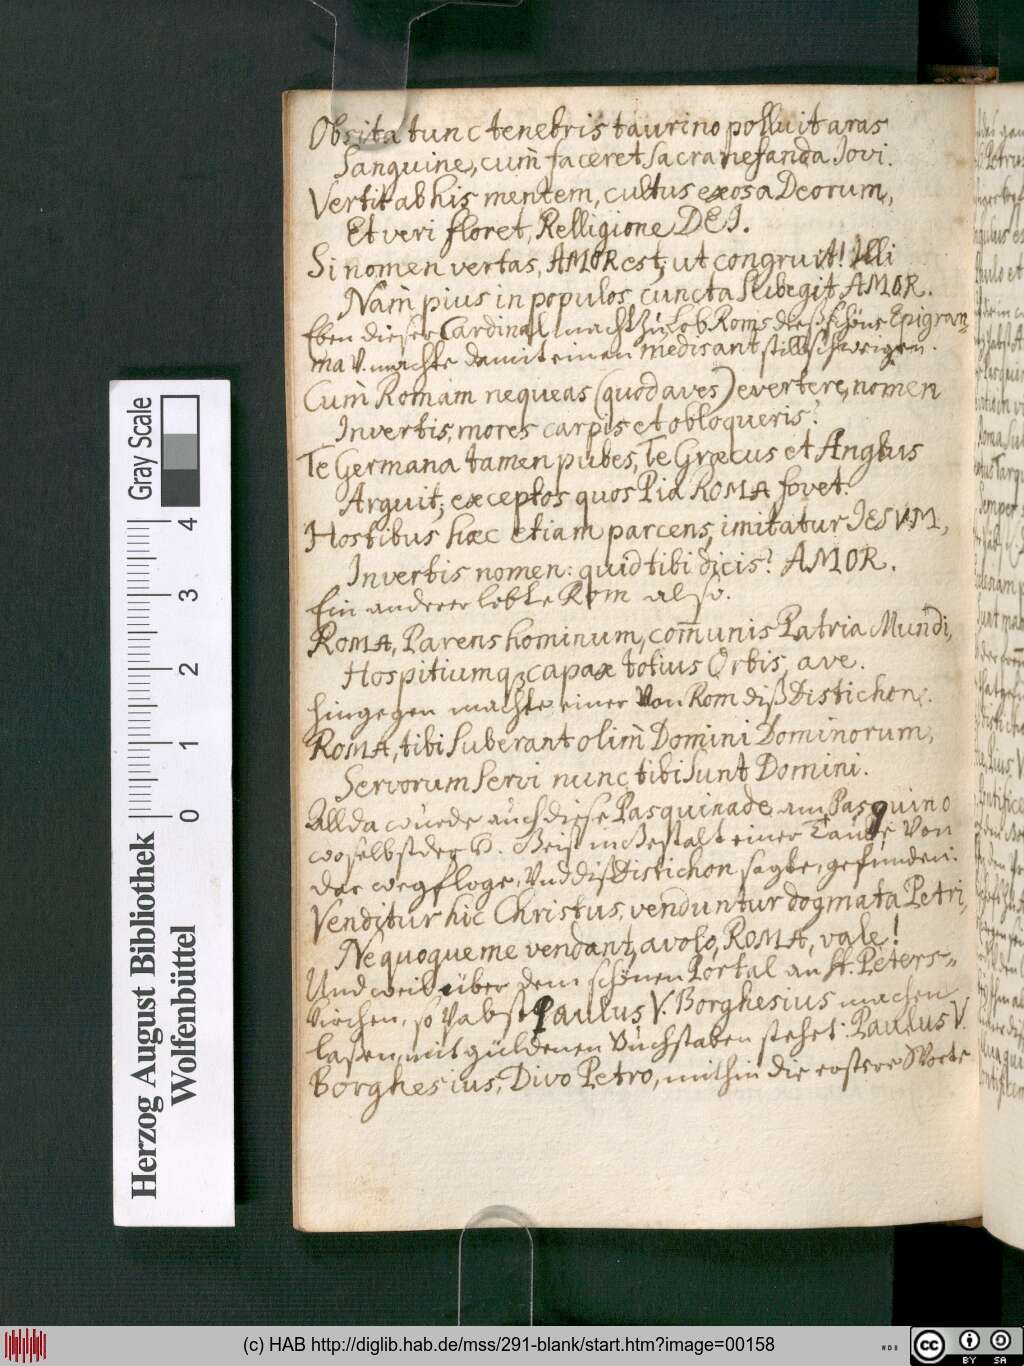 Obsita tunc tenebris taurino polluit aras
Sanguine, cum̃ faceret sacra nefanda Jovi.
Vertit ab his mentem, cultus exosa Deorum,
Et veri floret, Relligione DEI.
Si nomen vertas, AMOR est; ut congruit! Illi
Nam̃ pius in populos, cuncta subegit AMOR.
Eben dieser Cardinal macht zu Lob Roms dieß schöne Epigram̃-
ma v. machte damit einen medisant stillschweigen.
Cum̃ Romam nequeas (quod aves) evertere, nomen
Invertis; mores carpis et obloqueris?
Te Germana tamen pubes, Te Græcus et Anglus
Arguit; exceptos quos Pia ROMA fovet.
Hostibus hæc etiam parcens, imitatur JESVM,
Invertis nomen: quid tibi dicis? AMOR.
Ein anderer lobte Rom also.
ROMA, Parens hominum, com̃unis Patria Mundi,
Hospitiumqꝫ capax totius Orbis, ave.
hingegen machte einer von Rom diß Distichon.
ROMA, tibi suberant olim̃ Domini Dominorum,
Servorum servi nunc tibi sunt Domini.
Allda wurde auch diese Pasquinade am Pasquino
woselbst der H. Geist in Gestalt einer Taube von
dar wegfloge, Vnd diß Distichon sagte, gefunden.
Venditur hic Christus, venduntur dogmata Petri,
Ne quoque me vendant, avolo, ROMA, vale!
Und weil über dem schönen Portal an St. Peters-
Kirchen, so Pabst Paulus V. Borghesius machen
laßen, mit güldenen Buchstaben stehet: Paulus V.
Borghesius, Divo Petro, mithin die erstere Worte
Gray Scale
4
3
2
1
0
Herzog August Bibliothek
Wolfenbüttel
(c) HAB http://diglib.hab.de/mss/291-blank/start.htm?image=00158
WDB
cc
BY SA